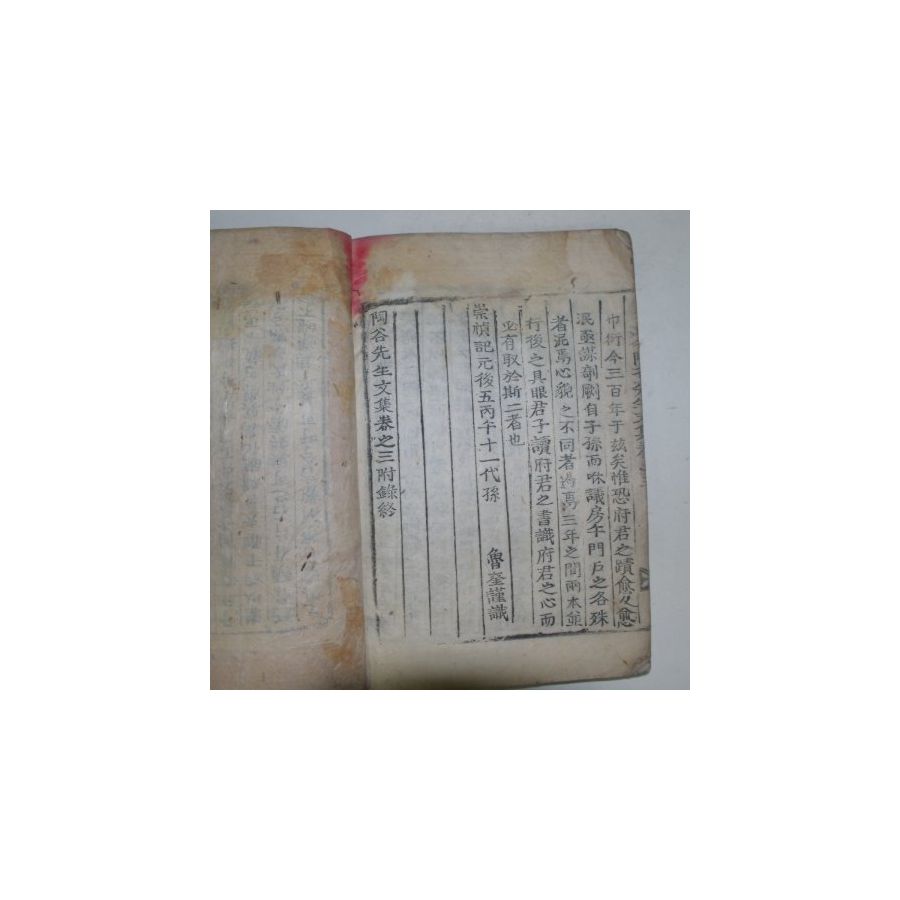 巾衍今三百年于玆矣惟恐府君之蹟愈久愈
泯亟謀剞劂自子孫而咻議房午門戶之各殊
者泥焉心貌之不同者為三年之間兩本並
行後之具眼君子讀府君之書識府君之心而
必有取於斯二者也
崇禎記元後五丙午十一代孫 魯奎謹識
陶谷先生文集卷之三附錄終